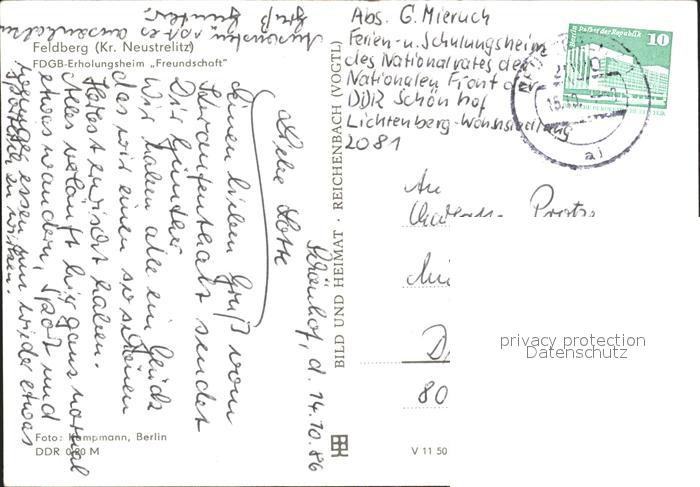 Feldberg (Kr. Neustrelitz)
FDGB-Erholungsheim „Freundschaft"
Schönhof, d. 14.10.86
Liebe Lotte
einen lieben Gruß vom
Kuraufenthalt sendet
Dir Günther
Wir haben alle ein Glück
das wir einen so schönen
Herbst erwischt haben.
Alles verläuft hier ganz normal
etwas wandern, Sport und
weniger essen um wieder etwas
zu
Ansonsten
Gruß
Günther
Foto: Kampmann, Berlin
DDR 0,20 M
BILD UND HEIMAT · REICHENBACH (VOGTL)
V 11 50
Abs. G. Mieruch
Ferien-u. Schulungsheim
des Nationalrates der
Nationalen Front der
DDR Schönhof
Lichtenberg-Wohnsiedlung
2081
Berlin Palast der Republik
10
aj
An
80
privacy protection
Datenschutz